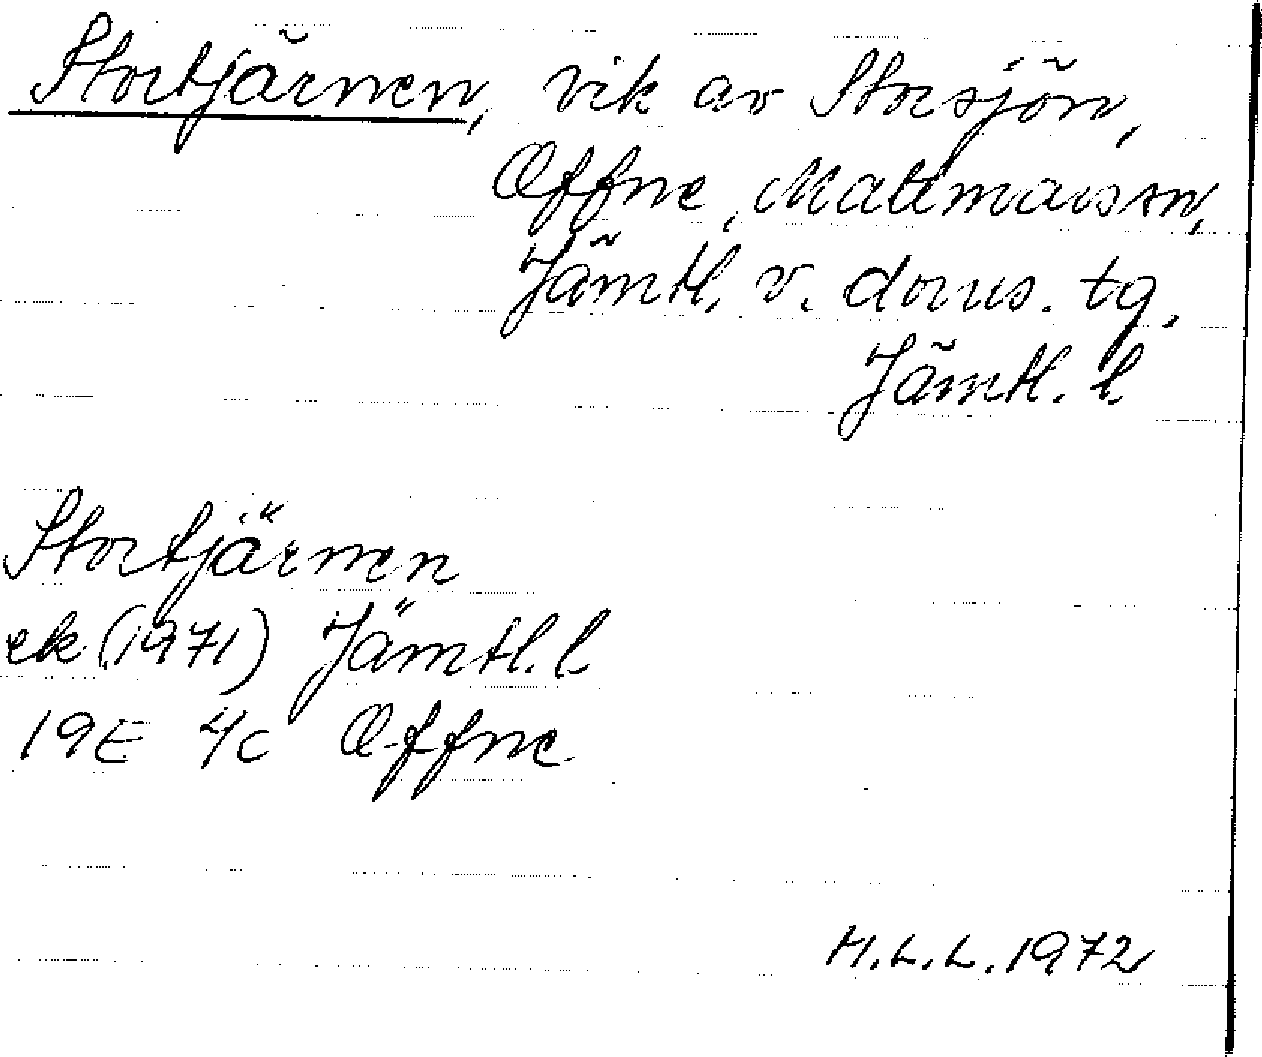 Stortjärnen, vik av Storsjön,
Offne, Mattmarssn,
Jämtl. v. doms. tg.
Jämtl. l.
Stortjärnen
ek (1971) Jämtl. l.
19E 4c Offne
H.L.L. 1972